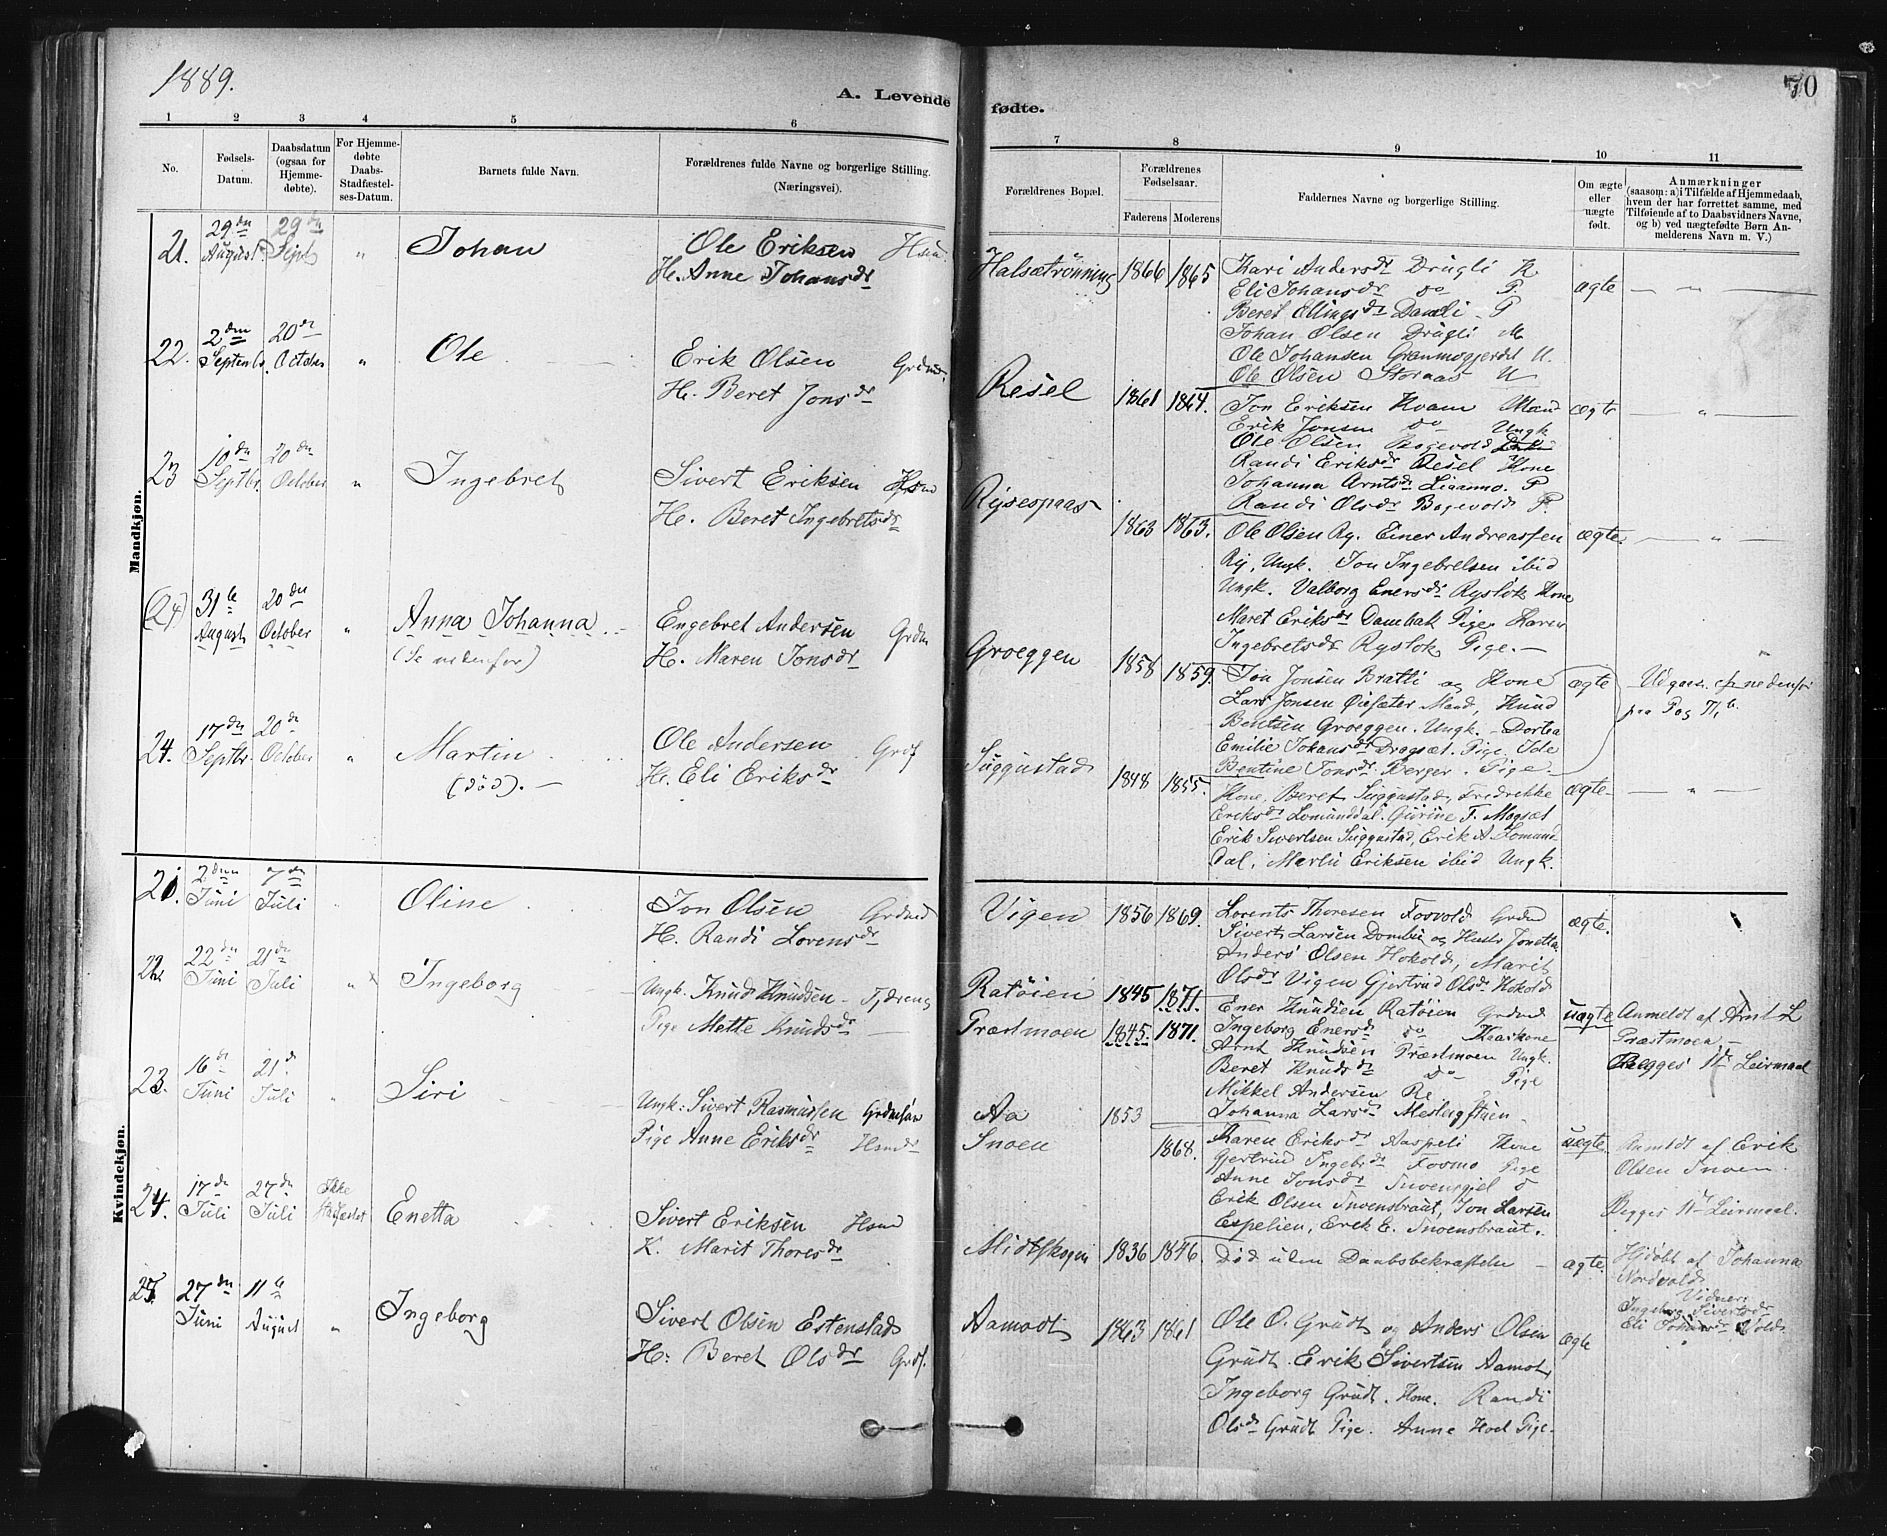 1889.
A. Levende
fødte.
70
1 2 3 4 5 6
7 8 9 10 11
No.
Fødsels-
Datum.
Daabsdatum
(ogsaa for
Hjemme-
døbte).
For Hjemme-
døbte
Daabs-
Stadfæstel-
ses-Datum.
Barnets fulde Navn.
Forældrenes fulde Navne og borgerlige Stilling.
(Næringsvei).
Forældrenes Bopæl.
Forældrenes
Fødselsaar.
Faderens Moderens
Faddernes Navne og borgerlige Stilling.
Om ægte
eller
uægte
født.
Anmærkninger
(saasom: a) i Tilfælde af Hjemmedaab,
hvem der har forrettet samme, med
Tilføiende af to Daabsvidners Navne,
og b) ved uægtefødte Børn An-
melderens Navn m. V.)
Mandkjøn.
21. 29de August 29de Sept " Johan
Ole Eriksen
H. Anne Johansdr
Halsætrønning 1866 1865
Kari Andersdr Drugli K.
Eli Johansdr do P.
Beret Ellingsdr Danli P
Johan Olsen Drugli M
Ole Johansen Granmogjerdet U.
Ole Olsen Storaas U
ægte — " —
22. 2den Septenb. 20de October " Ole
Erik Olsen Grdmd.
H. Beret Jonsdr
Resel 1861 1864.
Jon Eriksen Kvam Mand
Erik Jonsen do Ungk
Ole Olsen Bagevold
Randi Eriksdr Resel Kone
Johanna Arntsdr P
Randi Olsdr Bagevold P.
ægte — " —
23 10de Septbr. 20de October " Ingebret
Sivert Eriksen Hsmd
H. Beret Ingebretsdr
Rysespaas 1863 1863.
Ole Olsen Ry. Einer Andreassen
Ry, Ungk. Jon Ingebretsen ibid
Ungk. Valborg Enersdr Rysløk Kone
Maret Eriksdr Dambak Pige Karen
Ingebretsdr Rysløk Pige. —
ægte. — " —
(24) 31te August 20de October " Anna Johanna
(Se nedenfor)
Engebret Andersen Grdm
H. Maren Jonsdr
Groeggen 1858 1859.
Jon Jonsen Bratli og Kone
Lars Jonsen Øiesæter Mand, Knud
Bentsen Groeggen. Ungk. - Dortea
Emilie Johansdr Dragsæt. Pige, Ide
Bentine Jonsdr Berger. Pige.
ægte
Udgaar. cfr nedenfor
paa Pag 71,
24. 17de Septbr. 20de October " Martin
(død). —
Ole Andersen
H. Eli Eriksdr
Suggustad 1848 1855.
Kone, Beret Suggustad, Fredrekke
Eriksdr Lomunddal. Gurine F. Mogsæt
Erik Sivertsen Suggustad, Erik A. Lomund
dal, Marlu Eriksen ibid Ungk.
ægte. — " —
Kvindekjøn.
21. 2den Juni 7de Juli " Oline
Jon Olsen Grdmd
H. Randi Lorensdr
Vigen 1856 1869.
Lorents Thoresen Fosvold Grdmd
Sivert Larsen Dombu og Hustr Jonetta
Anders Olsen Hokold, Marit
Olsdr Vigen Gjertrud Olsdr Hokold
ægte.
22. 22de Juni 21de Juli " Ingeborg
Ungk. Knud Knudsen - Tjdreng
Pige Mette Knudsdr —
Ratøien 1845 1871.
Præstmoen 1845. 1871.
Ener Knudsen Ratøien Grdmd
Ingeborg Enersdr do Kaarkone
Arnt Knudsen Præstmoen Ungk.
Beret Knudsdr Do Pige
Mikkel Andersen Re
uægte
Anmeldt af Arnt L
Præstmoen —
Begges 1ste Leirmaal
23. 16de Juni 21de Juli " Siri
Ungk: Sivert Rasmussen Grdmsøn
Pige Anne Eriksdr
Aa 1853
Snoen 1868.
Johanna Larsdr
Karen Eriksdr Aaspeli Kone
Gjertrud Ingebrdr Fosmo Pige
Anne Jonsdr Snoensgjel
Erik Olsen Snoensbraut, Jon Larsen
Espelien, Erik E. Snoensbraut.
uægte
Anmldt af Erik
Olsen Snoen
Begges 1ste Leirmaal.
24. 17de Juli 27de Juli Ikke Stadfæstet Enetta
Sivert Eriksen Hsmd
K. Marit Thoresdr
Midtskogen 1836 1846.
Død uden Daabsbekræftelse —
ægte.
Hjdøbt af Johanna
Nordvold
Vidner:
Ingeborg Sivertsdr
Eli Johansdr Vold.
25. 27de Juni 11te August " Ingeborg
Sivert Olsen Estenstad
H: Beret Olsdr
Aamodt 1863 1861
Ole O. Grudt og Anders Olsen
Grudt. Erik Sivertsen Aamot,
Ingeborg Grudt. Kone. Randi
Olsdr Grudt Pige. Anne Hoel Pige.
ægte "